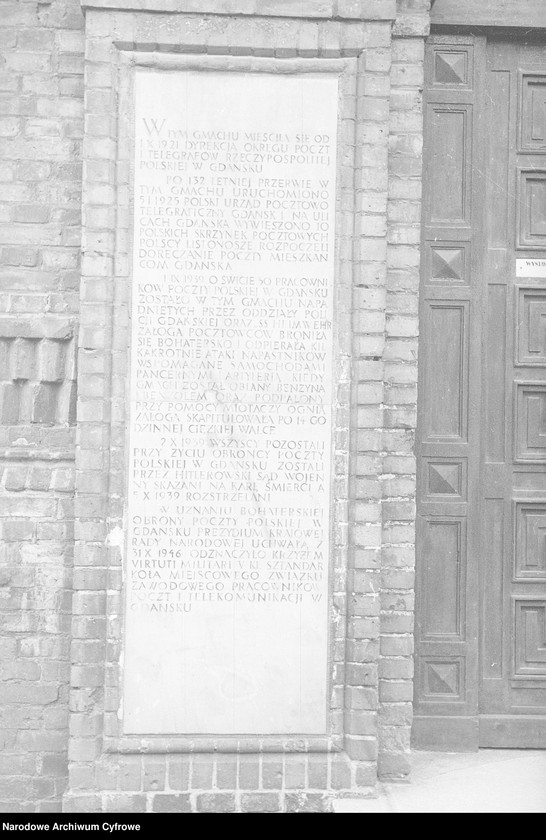 W TYM GMACHU MIEŚCIŁA SIĘ OD
1 X 1921 DYREKCJA OKRĘGU POCZT
I TELEGRAFÓW RZECZYPOSPOLITEJ
POLSKIEJ W GDAŃSKU
PO 132 LETNIEJ PRZERWIE W
TYM GMACHU URUCHOMIONO
5 I 1925 POLSKI URZĄD POCZTOWO
TELEGRAFICZNY GDAŃSK I NA ULI
CACH GDAŃSKA WYWIESZONO 10
POLSKICH SKRZYNEK POCZTOWYCH
POLSCY LISTONOSZE ROZPOCZĘLI
DORĘCZANIE POCZTY MIESZKAŃ
COM GDAŃSKA
1 IX 1939 O ŚWICIE 50 PRACOWNI
KÓW POCZTY POLSKIEJ W GDAŃSKU
ZOSTAŁO W TYM GMACHU NAPA
DNIĘTYCH PRZEZ ODDZIAŁY POLI
CJI GDAŃSKIEJ ORAZ SS HEIMWEHR
ZAŁOGA POCZTOWCÓW BRONIŁA
SIĘ BOHATERSKO I ODPIERAŁA KIL
KAKROTNE ATAKI NAPASTNIKÓW
WSPOMAGANE SAMOCHODAMI
PANCERNYMI I ARTYLERIĄ KIEDY
GMACH ZOSTAŁ OBLANY BENZYNĄ
I PODPALONY
PRZY POMOCY MIOTACZY OGNIA
ZAŁOGA SKAPITULOWAŁA PO 14 GO
DZINNEJ CIĘŻKIEJ WALCE
WSZYSCY POZOSTALI
PRZY ŻYCIU OBROŃCY POCZTY
POLSKIEJ W GDAŃSKU ZOSTALI
PRZEZ HITLEROWSKI SĄD WOJEN
NY SKAZANI NA KARĘ ŚMIERCI A
X 1939 ROZSTRZELANI
W UZNANIU BOHATERSKIEJ
OBRONY POCZTY POLSKIEJ W
GDAŃSKU PREZYDIUM KRAJOWEJ
RADY NARODOWEJ UCHWAŁĄ Z
31 X 1946 ODZNACZYŁO KRZYŻEM
VIRTUTI MILITARI V KL SZTANDAR
KOŁA MIEJSCOWEGO ZWIĄZKU
ZAWODOWEGO PRACOWNIKÓW
POCZT I TELEKOMUNIKACJI W
GDAŃSKU
Narodowe Archiwum Cyfrowe